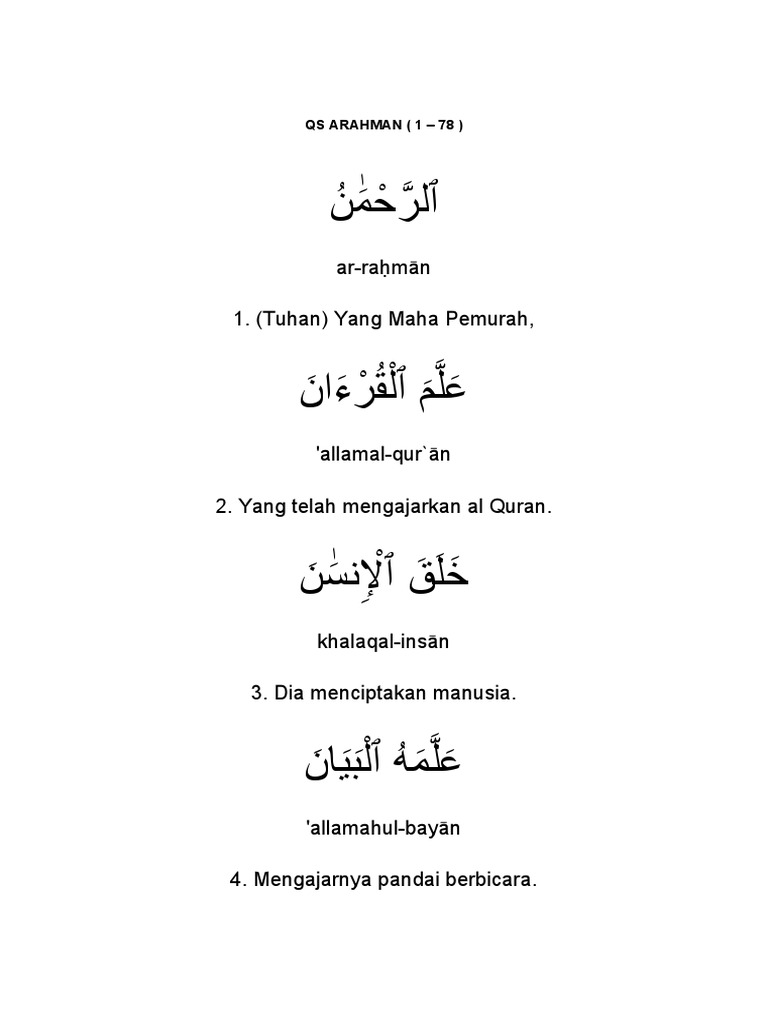 QS ARAHMAN ( 1 – 78 )
ٱلرَّحْمَٰنُ
ar-raḥmān
1. (Tuhan) Yang Maha Pemurah,
عَلَّمَ ٱلْقُرْءَانَ
'allamal-qur`ān
2. Yang telah mengajarkan al Quran.
خَلَقَ ٱلْإِنسَٰنَ
khalaqal-insān
3. Dia menciptakan manusia.
عَلَّمَهُ ٱلْبَيَانَ
'allamahul-bayān
4. Mengajarnya pandai berbicara.